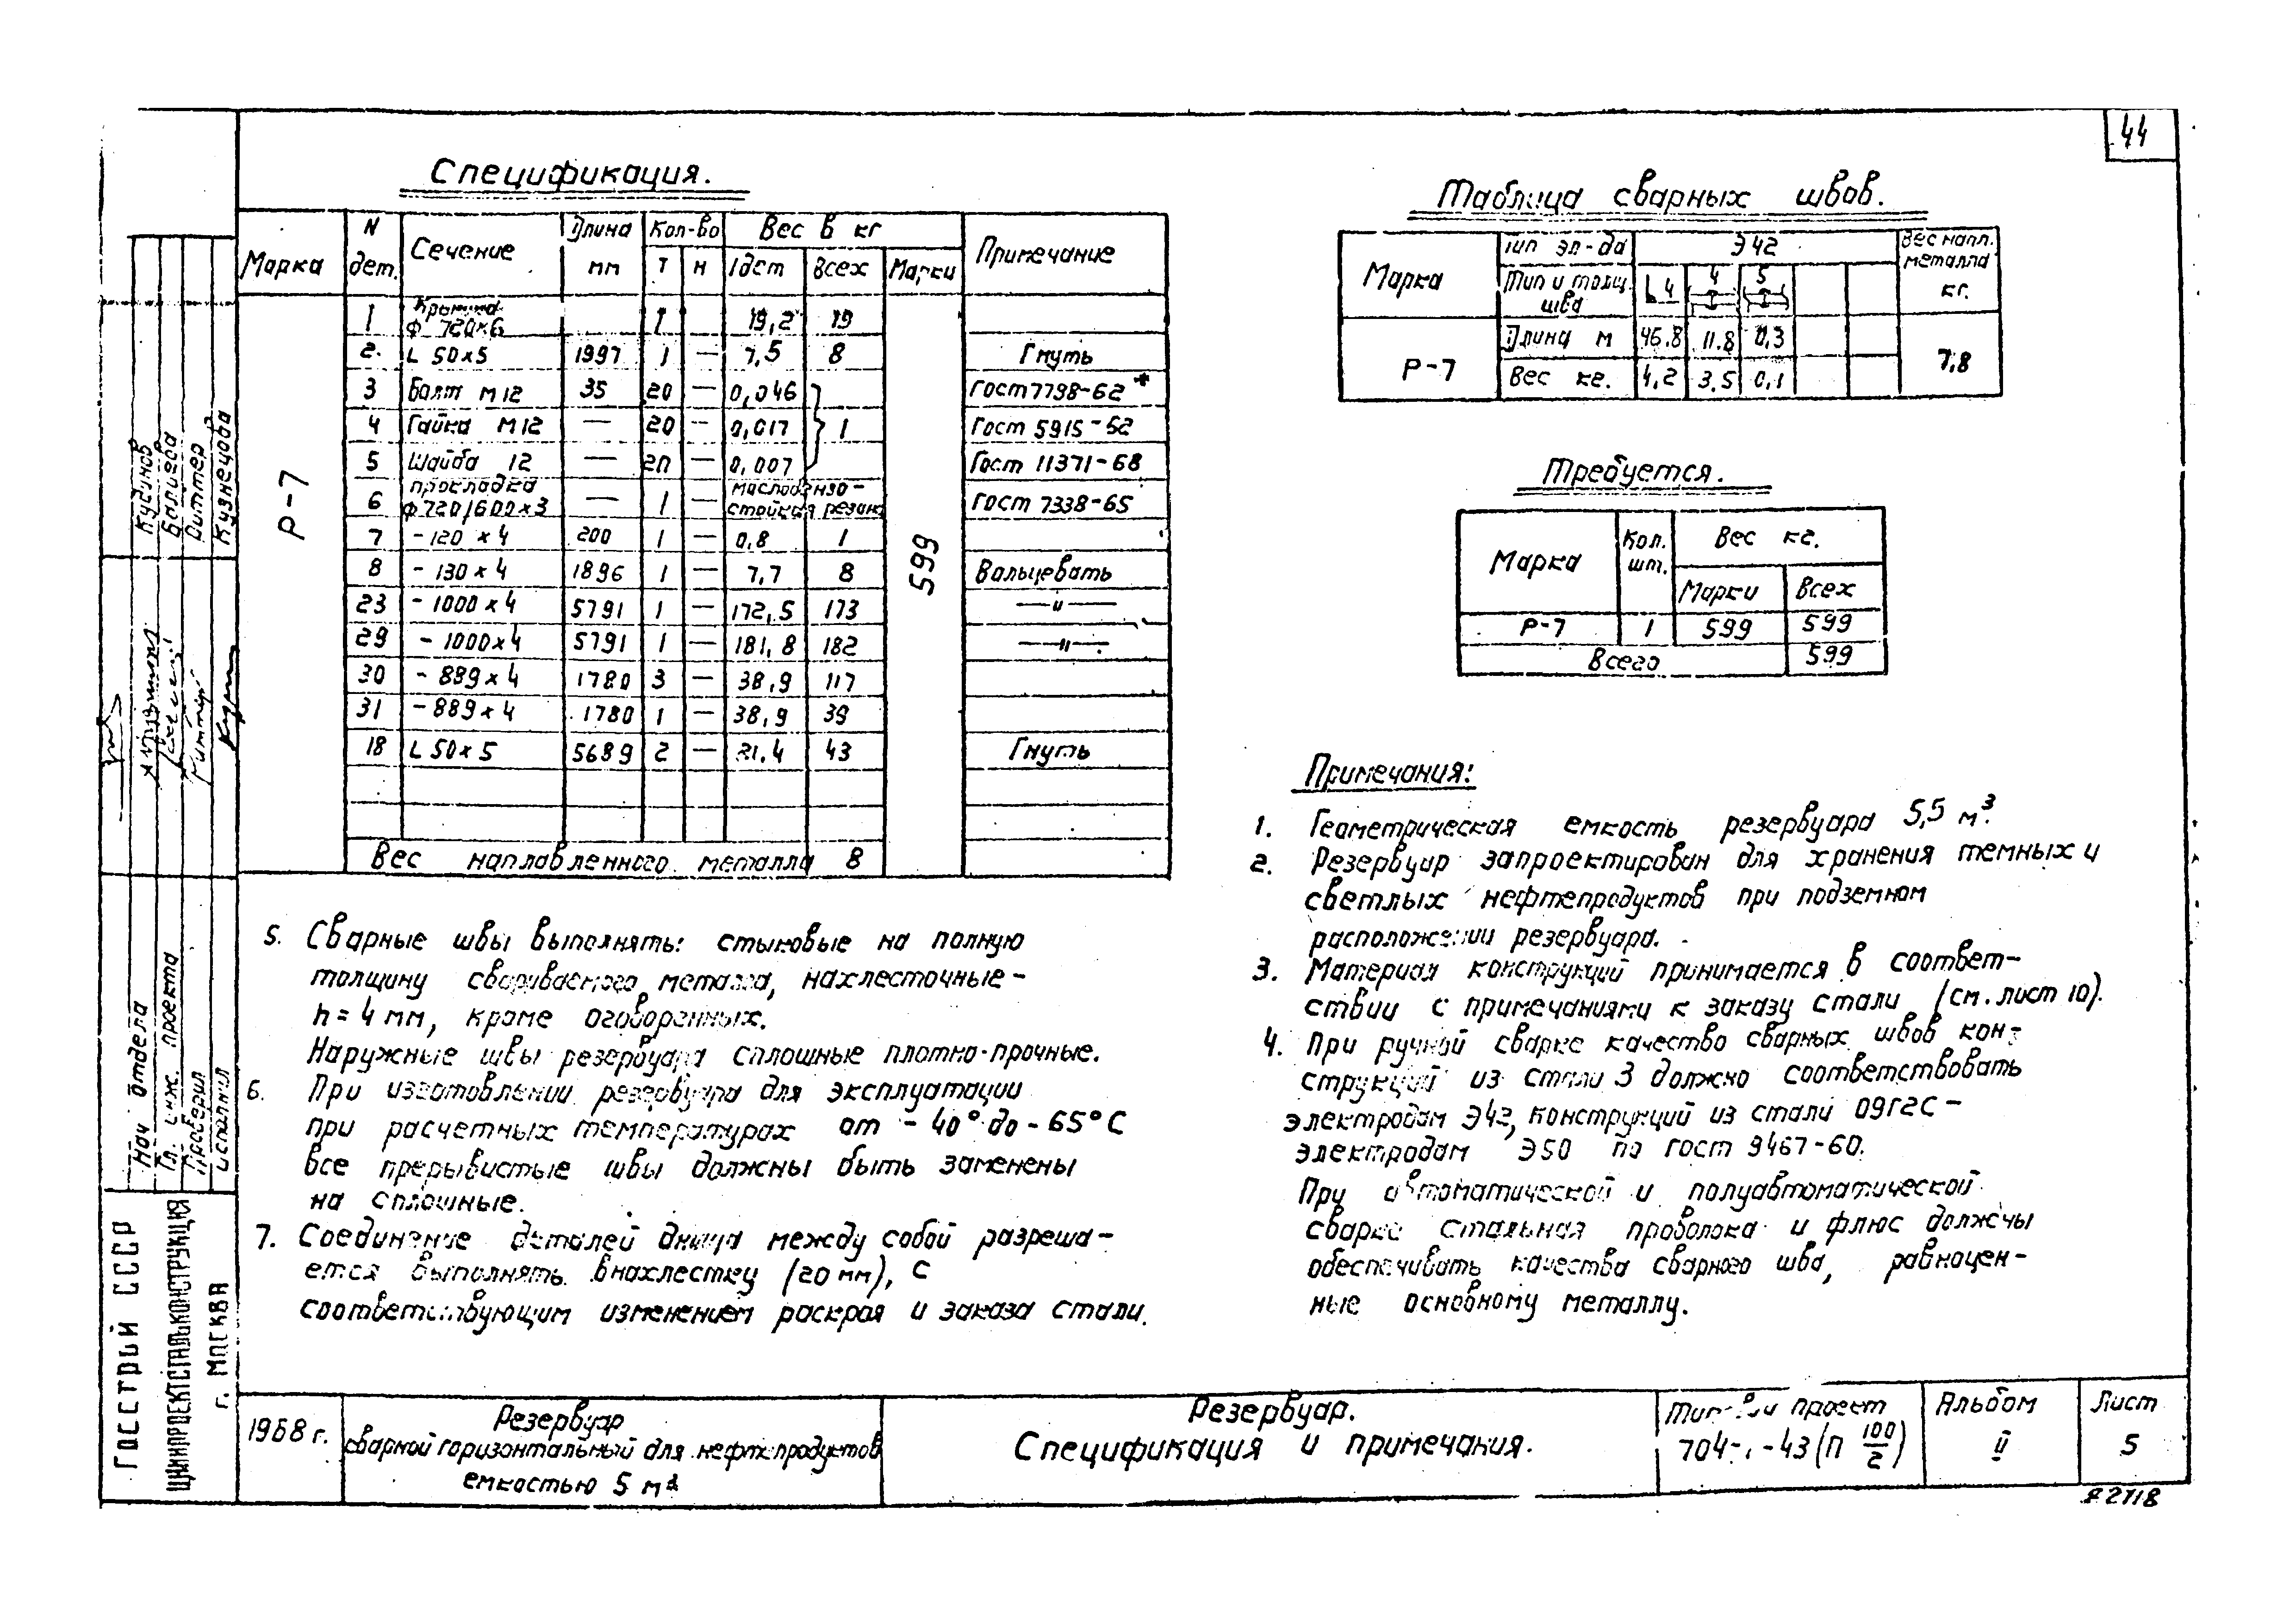 44
Спецификация.
Марка N дет. Сечение Длина мм Кол-во Т Н Вес в кг 1дет Всех Марки Примечание
Р-7 599
1 Крышка ф 720×6 1 19,2 19
2. L 50×5 1997 1 — 7,5 8 Гнуть
3 Болт М12 35 20 — 0,046 Гост 7798-62*
4 Гайка М12 — 20 — 0,017 1 Гост 5915-62
5 Шайба 12 — 20 — 0,007 Гост 11371-68
6 прокладка ф720/600×3 — 1 — маслобензо-стойкая резина Гост 7338-65
7 -120×4 200 1 — 0,8 1
8 -130×4 1896 1 — 7,7 8 Вальцевать
23 -1000×4 5791 1 — 172,5 173 —"—
29 -1000×4 5791 1 — 181,8 182 —"—
30 -889×4 1780 3 — 38,9 117
31 -889×4 1780 1 — 38,9 39
18 L 50×5 5689 2 — 21,4 43 Гнуть
Вес наплавленного металла 8
5. Сварные швы выполнять: стыковые на полную
толщину свариваемого металла, нахлесточные-
h=4мм, кроме оговоренных.
Наружные швы резервуара сплошные плотно-прочные.
6. При изготовлении резервуара для эксплуатации
при расчетных температурах от -40° до -65°С
все прерывистые швы должны быть заменены
на сплошные.
7. Соединение деталей днища между собой разреша-
ется выполнять внахлестку (20 мм), с
соответствующим изменением раскроя и заказа стали.
Таблица сварных швов.
Марка Тип эл-да Э42 Вес напл. металла кг.
Тип и толщ. шва 4 4 5
Р-7 Длина м 46.8 11.8 0,3 7,8
Вес кг. 4,2 3.5 0,1
Требуется.
Марка Кол. шт. Вес кг.
Марки Всех
Р-7 1 599 599
Всего 599
Примечания:
1. Геометрическая емкость резервуара 5,5 м³.
2. Резервуар запроектирован для хранения темных и
светлых нефтепродуктов при подземном
расположении резервуара.
3. Материал конструкций принимается в соответ-
ствии с примечаниями к заказу стали (см. лист 10).
4. При ручной сварке качество сварных швов кон-
струкций из стали 3 должно соответствовать
электродам Э42, конструкций из стали 09Г2С-
электродам Э50 по гост 9467-60.
При автоматической и полуавтоматической
сварке стальная проволока и флюс должны
обеспечивать качества сварного шва, равноцен-
ные основному металлу.
Нач отдела Кудинов
Гл. инж. проекта
Проверил Риттер
исполнил Кузнецова
Госстрой СССР
ЦНИИПРОЕКТСТАЛЬКОНСТРУКЦИЯ
г. Москва
1968 г.
Резервуар
сварной горизонтальный для нефтепродуктов
емкостью 5 м³
Резервуар.
Спецификация и примечания.
Типовой проект
704-1-43 (П 100/2)
Альбом
II
Лист
5